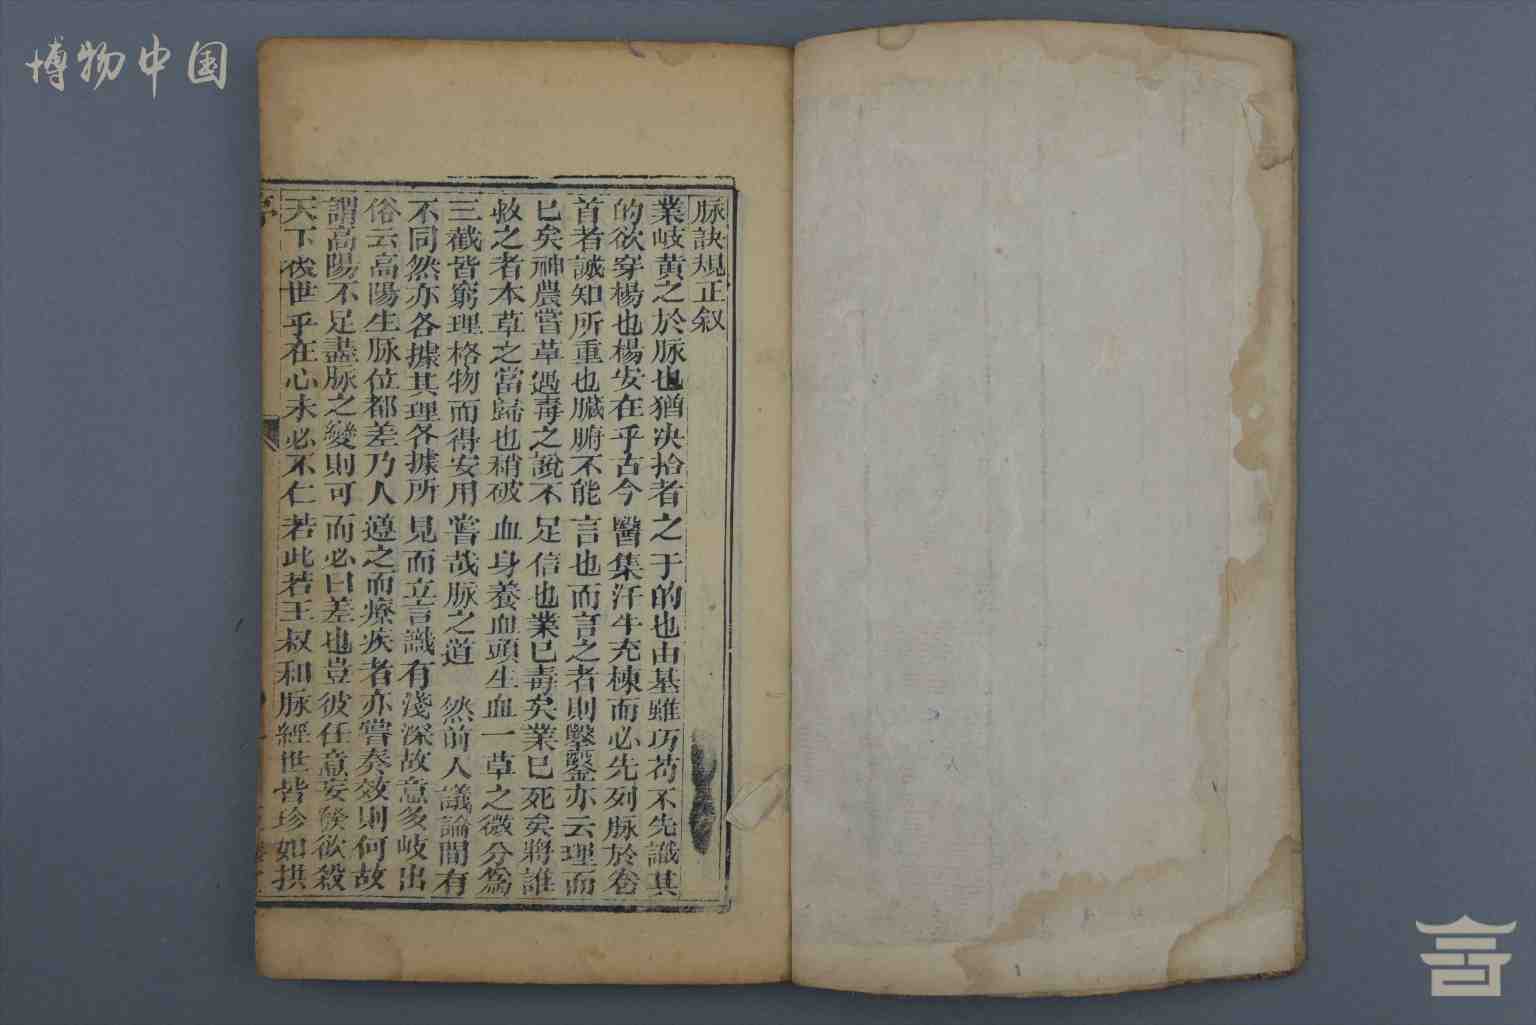 博物中国
脉訣規正叙
業岐黄之於脉也猶决拾者之于的也由基雖巧苟不先識其
的欲穿楊也楊安在乎古今醫集汗牛充棟而必先列脉於卷
首者誠知所重也臟腑不能言也而言之者則鑿鑿亦云理而
已矣神農嘗草遇毒之說不足信也業已毒矣業已死矣將誰
救之者本草之當歸也稍破血身養血頭生血一草之微分爲
三截皆窮理格物而得安用嘗哉脉之道 然前人議論間有
不同然亦各據其理各據所見而立言識有淺深故意多岐出
俗云高陽生脉位都差乃人遵之而療疾者亦嘗奏效則何故
謂高陽不足盡脉之變則可而必曰差也豈彼任意妄候欲殺
天下後世乎在心未必不仁若此若王叔和脉經世皆珍如拱